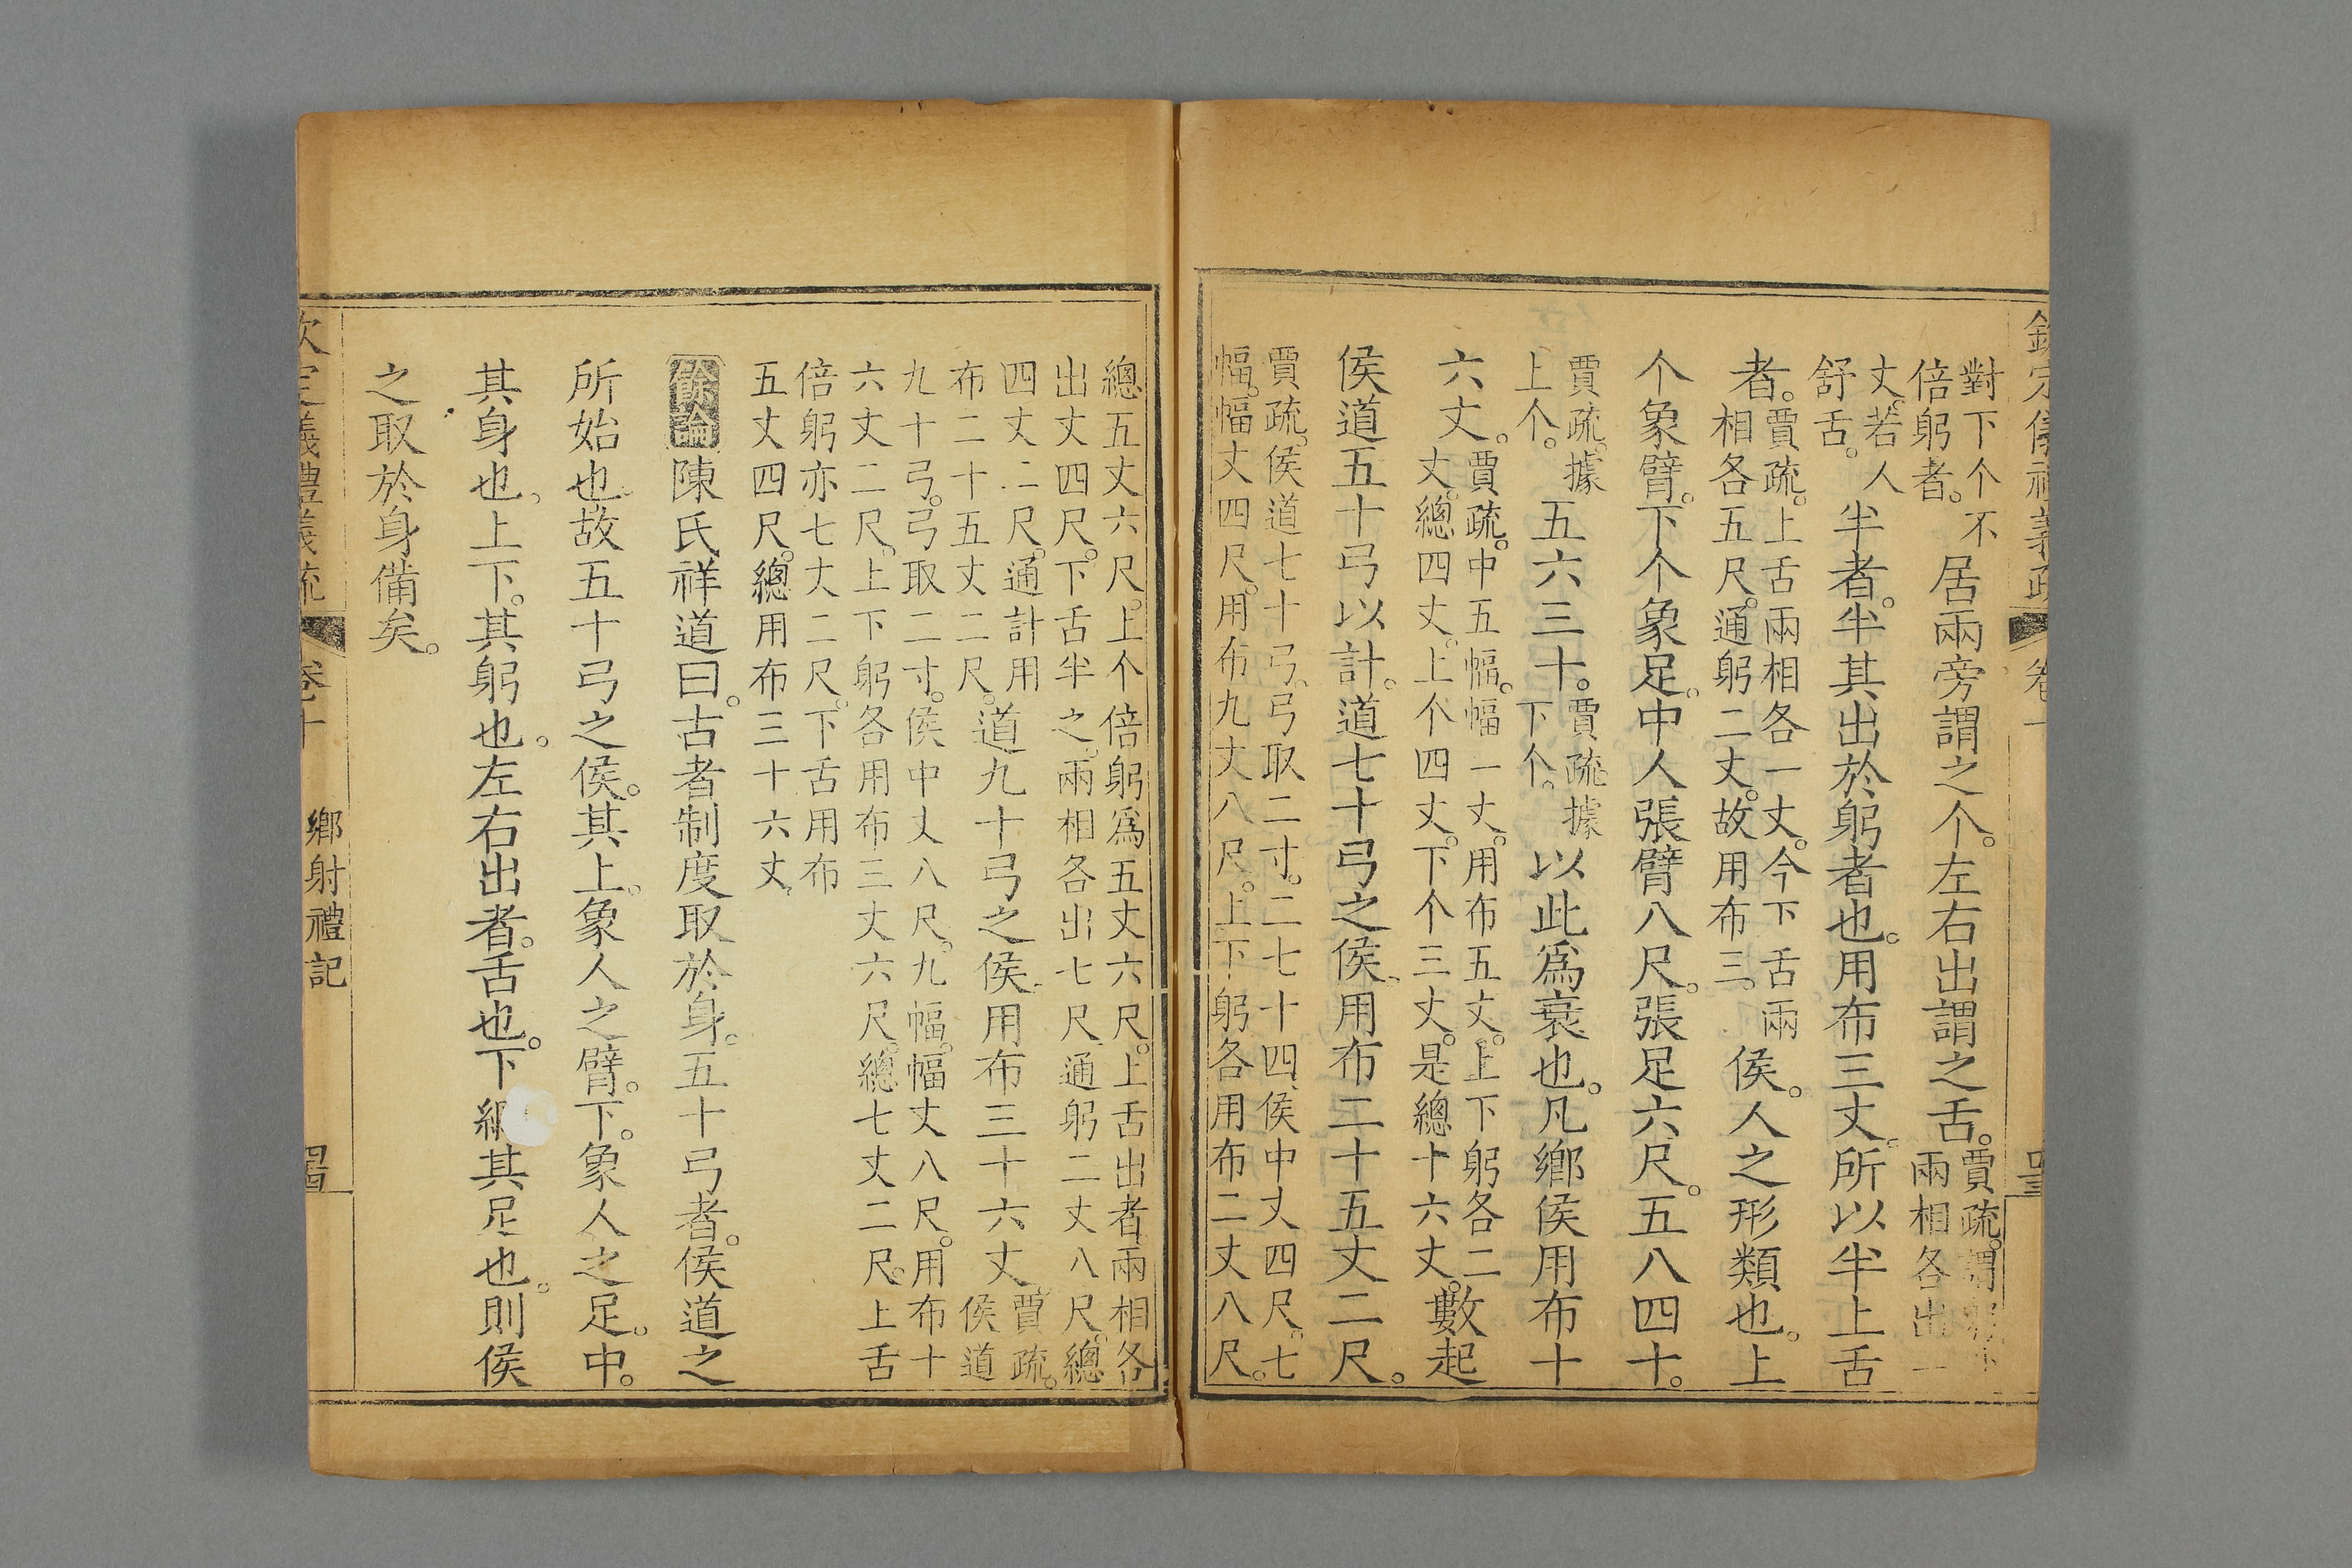 卷
對下个不倍躬者。居兩旁謂之个。左右出謂之舌。賈疏。謂躬外兩相各出一
丈。若人舒舌。半者。半其出於躬者也。用布三丈。所以半上舌
者。賈疏。上舌兩相各一丈。今下舌兩相各五尺。通躬二丈。故用布三。侯。人之形類也。上
个象臂。下个象足。中人張臂八尺。張足六尺。五八四十。
賈疏。據上个。五六三十。賈疏據下个。以此爲衰也。凡鄉侯用布十
六丈。賈疏。中五幅。幅一丈。用布五丈。上下躬各二丈。總四丈。上个四丈。下个三丈。是總十六丈。數起
侯道五十弓以計。道七十弓之侯。用布二十五丈二尺。
賈疏。侯道七十弓。弓取二寸。二七十四。侯中丈四尺。七
幅。幅丈四尺。用布九丈八尺。上下躬各用布二丈八尺。
總五丈六尺。上个倍躬爲五丈六尺。上舌出者兩相各
出丈四尺。下舌半之。兩相各出七尺。通躬二丈八尺。總
四丈二尺。通計用布二十五丈二尺。道九十弓之侯。用布三十六丈。賈疏。侯道
九十弓。弓取二寸。侯中丈八尺。九幅。幅丈八尺。用布十
六丈二尺。上下躬各用布三丈六尺。總七丈二尺。上舌
倍躬亦七丈二尺。下舌用布
五丈四尺。總用布三十六丈。
餘論陳氏祥道曰。古者制度取於身。五十弓者。侯道之
所始也。故五十弓之侯。其上。象人之臂。下。象人之足。中。
其身也。上下。其躬也。左右出者。舌也。下綱其足也。則侯
之取於身備矣。
卷十 鄉射禮記